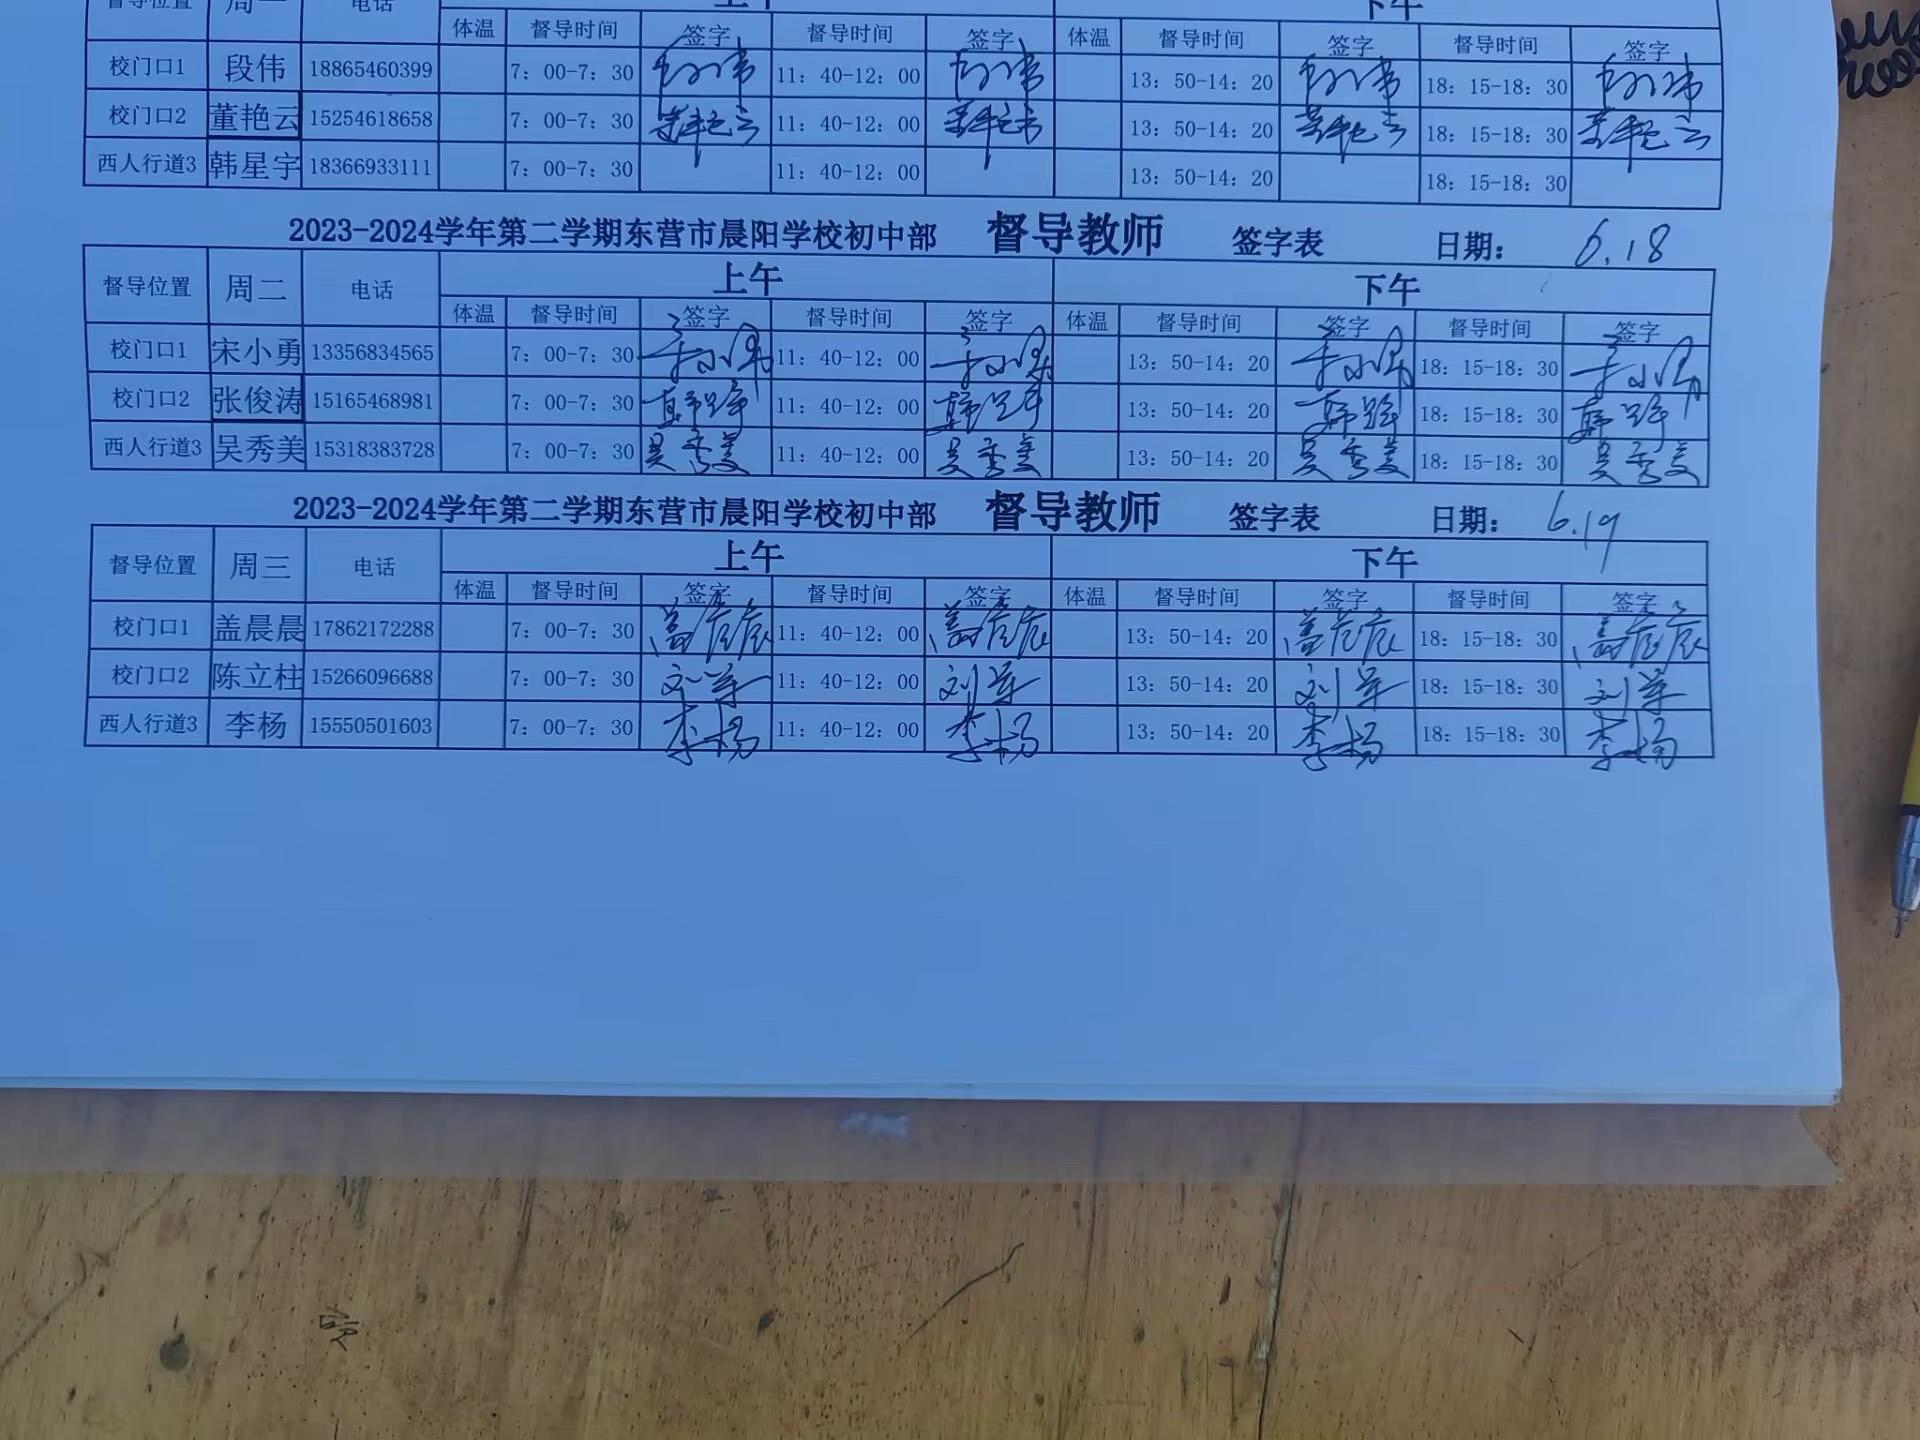 督导位置 周一 电话 上午 下午
体温 督导时间 签字 督导时间 签字 体温 督导时间 签字 督导时间 签字
校门口1 段伟 18865460399 7：00-7：30 11：40-12：00 13：50-14：20 18：15-18：30
校门口2 董艳云 15254618658 7：00-7：30 董艳云 11：40-12：00 董艳云 13：50-14：20 董艳云 18：15-18：30 董艳云
西人行道3 韩星宇 18366933111 7：00-7：30 11：40-12：00 13：50-14：20 18：15-18：30
2023-2024学年第二学期东营市晨阳学校初中部 督导教师 签字表 日期： 6.18
督导位置 周二 电话 上午 下午
体温 督导时间 签字 督导时间 签字 体温 督导时间 签字 督导时间 签字
校门口1 宋小勇 13356834565 7：00-7：30 11：40-12：00 13：50-14：20 18：15-18：30
校门口2 张俊涛 15165468981 7：00-7：30 11：40-12：00 13：50-14：20 18：15-18：30
西人行道3 吴秀美 15318383728 7：00-7：30 吴秀美 11：40-12：00 吴秀美 13：50-14：20 吴秀美 18：15-18：30 吴秀美
2023-2024学年第二学期东营市晨阳学校初中部 督导教师 签字表 日期： 6.19
督导位置 周三 电话 上午 下午
体温 督导时间 签字 督导时间 签字 体温 督导时间 签字 督导时间 签字
校门口1 盖晨晨 17862172288 7：00-7：30 盖晨晨 11：40-12：00 盖晨晨 13：50-14：20 盖晨晨 18：15-18：30 盖晨晨
校门口2 陈立柱 15266096688 7：00-7：30 刘军 11：40-12：00 刘军 13：50-14：20 刘军 18：15-18：30 刘军
西人行道3 李杨 15550501603 7：00-7：30 李杨 11：40-12：00 李杨 13：50-14：20 李杨 18：15-18：30 李杨